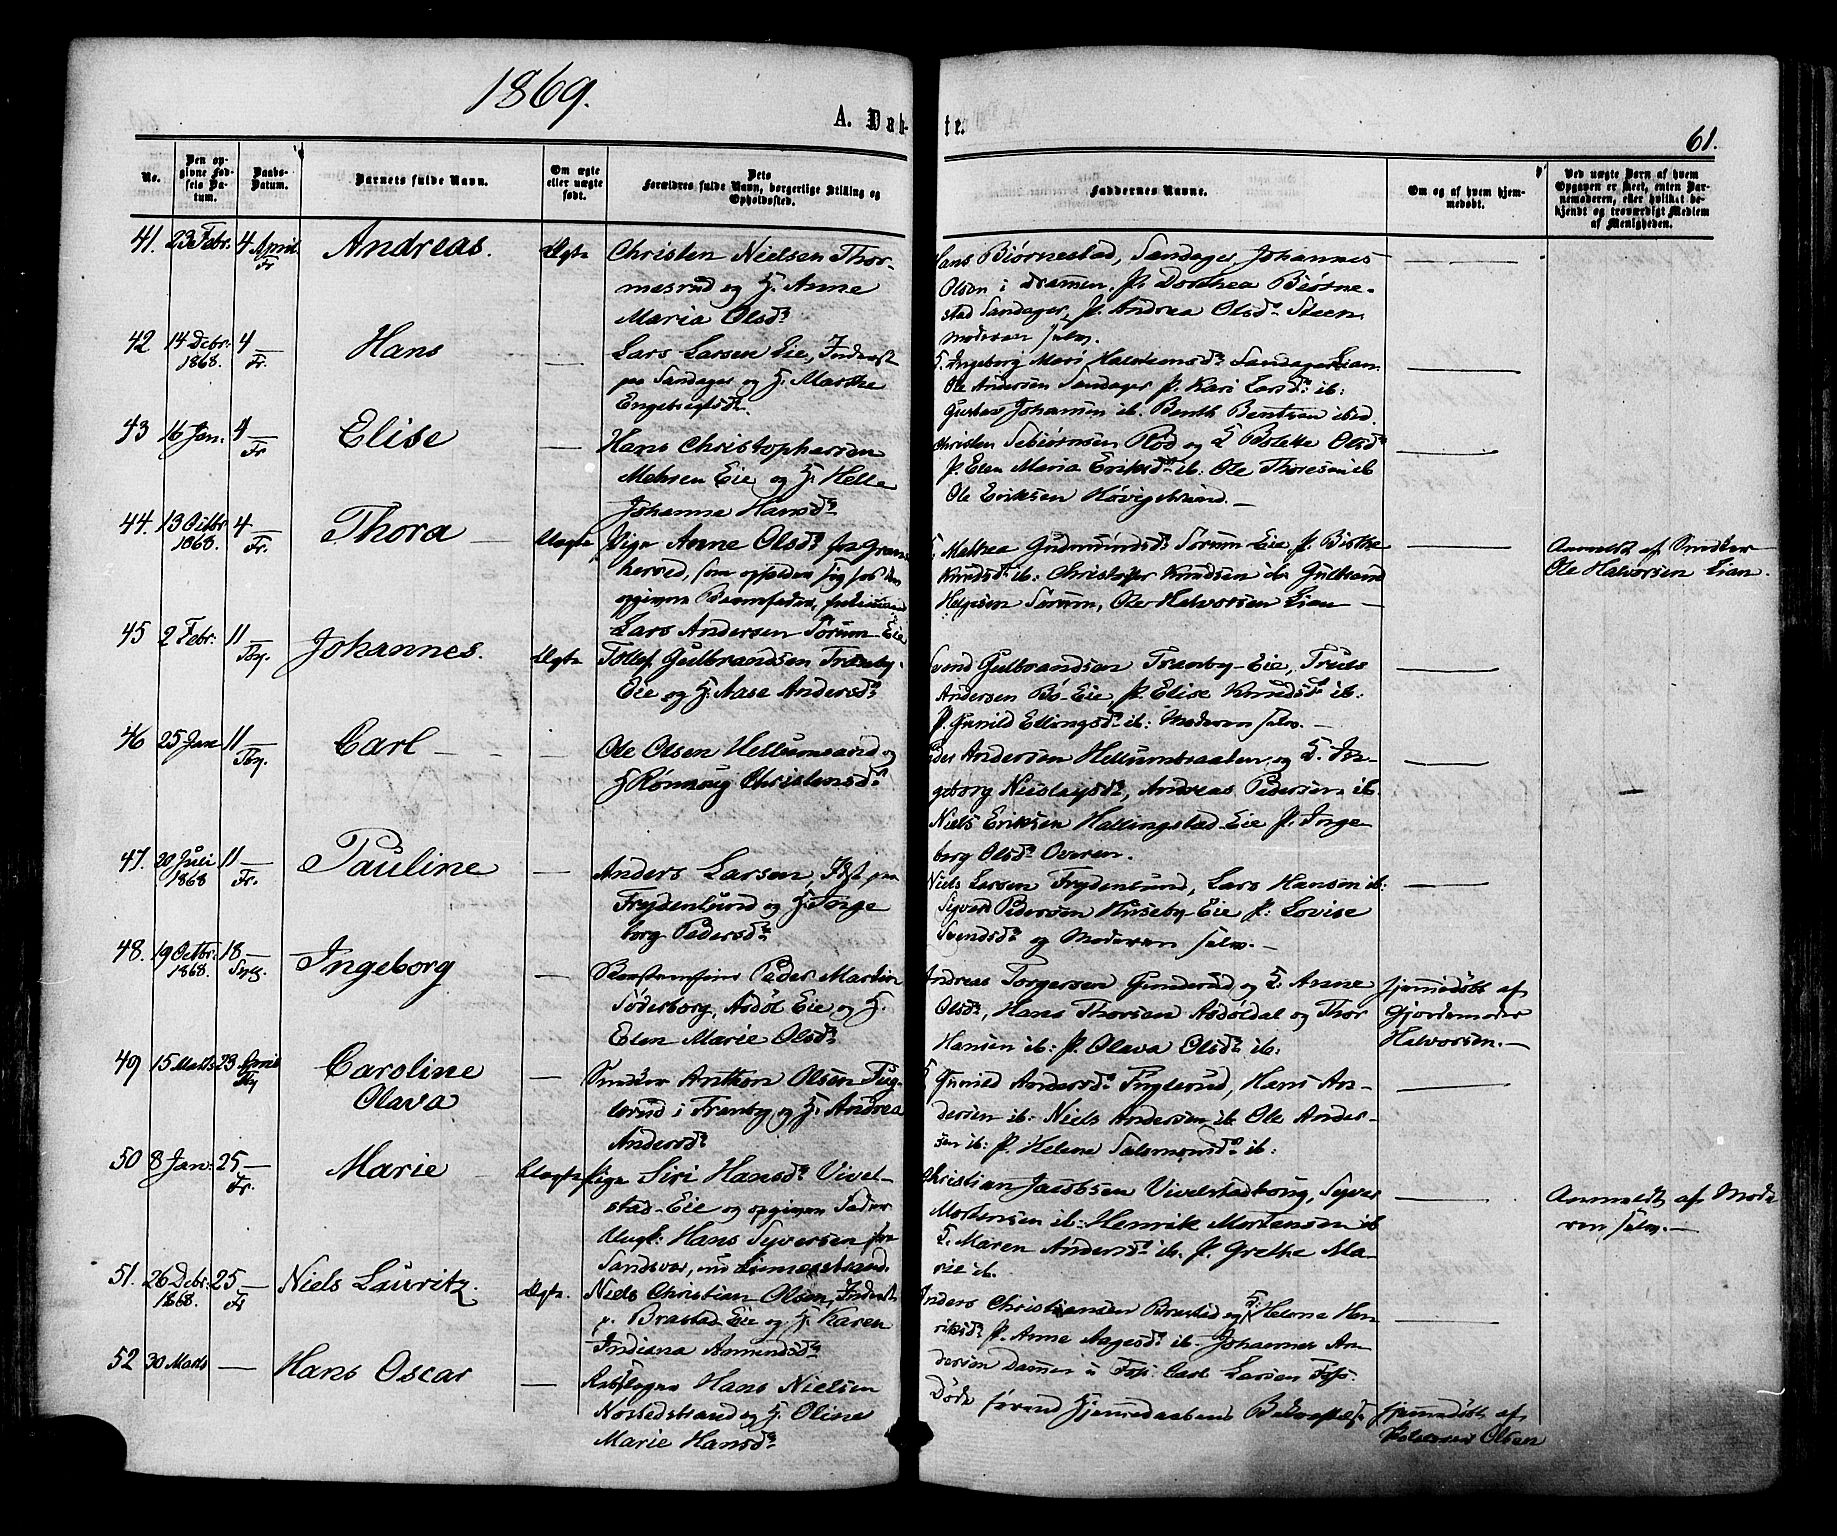 1869.
A. Dåb-
te.
61.
No.
Den op-
givne Fød-
sels Da-
tum.
Daabs-
Datum.
Barnets fulde Navn.
Om ægte
eller uægte
født.
Dets
Forældres fulde Navn, borgerlige Stilling og
Opholdssted.
Faddernes Navne.
Om og af hvem hjem-
medøbt.
Ved uægte Børn af hvem
Opgaven er skeet, enten Bar-
nemoderen, eller hvilket be-
kjendt og troværdigt Medlem
af Menigheden.
41. 23 Febr. 4 April Fr Andreas. Ægte Christen Nielsen Thor-
masrud og H. Anne
Maria Olsdr
Hans Biørnestad, Sandager, Johannes
Olsen i Drammen, P. Dorthea Biørne-
stad Sandager, P. Andrea Olsdr Steen
moderen selv.
42 14 Debr. 1868. 4 Fr. Hans — Lars Larsen Eie, Inderst
paa Sandager og H. Marthe
Engebregtsdr
H. Ingeborg Mari Halvorsdr Sandager Lian
Ole Andersen Sandager P. Kari Larsdr ib:
Gustav Johansen ib. Benth Bentsen ibid.
43 16 Jan. 4 Fr Elise — Hans Christophersen
Mehren Eie og H. Helle
Johanne Hansdr
Christen Sebiørnsen Rød og H Bolette Olsdr
P. Elen Maria Eriksdr ib: Ole Thoresen ib
Ole Eriksen Høvigstrand. —
44. 13 Octbr 1868. 4 Fr. Thora — Uægte Pige Anne Olsdr fra Grans-
herred, som opholder sig hos den
opgivne Barnefader,
Lars Andersen Sørum-Eie
Mathea Gudmundsdr Sørum Eie, P. Birthe
Knudsdr ib: Christopher Knudsen ib. Gulbrand
Helgesen Sørum, Ole Halvorsen Lian —
Anmeldt af Snedker
Ole Halvorsen Lian.
45 2 Febr. 11 Tby. Johannes. Ægte Tollef Gulbrandsen Tranby-
Eie og H. Aase Andersdr
Svend Gulbrandsen Tranby-Eie, Truls
Andersen Bø-Eie, P. Elise Knudsdr ib.
P. Gunild Ellingsdr ib: Moderen selv. —
46 25 Jan 11 Tby. Carl — — Ole Olsen Hellumsarid og
H Rønnaug Christensdr
Peder Andersen Hellumbraaten og H. In-
geborg Nielsdr, Andreas Pedersen ib.
Niels Eriksen Hallingstad Eie P. Inge-
borg Olsdr Overen.
47. 20 Juli 1868 11 Fr. Pauline — Anders Larsen, Idst. paa
Frydenlund og H. Inge
borg Pedersdr
Niels Larsen Frydenlund, Lars Hansen ib:
Syvert Pedersen Huseby Eie P. Lovise
Svendsdr og Moderen selv. —
48. 19 Octbr. 1868. 18 — Ingeborg — Peder Martin
Søderborg, Asdøl Eie, og H.
Elen Marie Olsdr
Andreas Torgersen Gunderud og H. Anne
Olsdr, Hans Thorsen Asdøldal og Thor
Hansen ib: P. Olava Olsdr ib.
hjemmedøbt af
Gjordemoder
Halvorsen. —
49 15 Marts 23 April Tby Caroline
Olava
— Snedker Anthon Olsen Fug-
lerud i Tranby, og H. Andrea
Andersdr
H Gunild Andersdr Fuglerud, Hans An-
dersen ib: Niels Andersen ib. Ole Ander-
sen ib: P. Helene Salomonsdr ib:
50 8 Jan: 25 — Fr. Marie — Uægte Pige Siri Hansdr Vivel-
stad-Eie og opgiven Fader
Ungk: Hans Syversen fra
Sandsvær, nu Linnesstrand.
Christian Jacobsen Vivelstadhoug, Syver
Mortensen ib: Henrik Mortensen ib
H. Maren Andersdr ib. P. Grethe Ma-
rie ib.
Anmeldt af Mode
ren selv. —
51. 26 Debr. 1868. 25 — Fr Niels Lauritz. Ægte. Niels Christian Olsen, Inderst
p. Brastad Eie og H. Karen
Indiana Amundsdr
Anders Christiansen Brastad og H: Helene Hen-
riksdr P. Anne Aagesdr ib. Johannes An-
dersen Dammen u Foss. Carl Larsen Foss.
52 30 Marts — Hans Oscar — Hans Nielsen
Nossedstrand og H. Oline
Marie Hansdr
Døde forend Hjemmedaabens Bekræftelse
hjemmedøbt af
Olsen